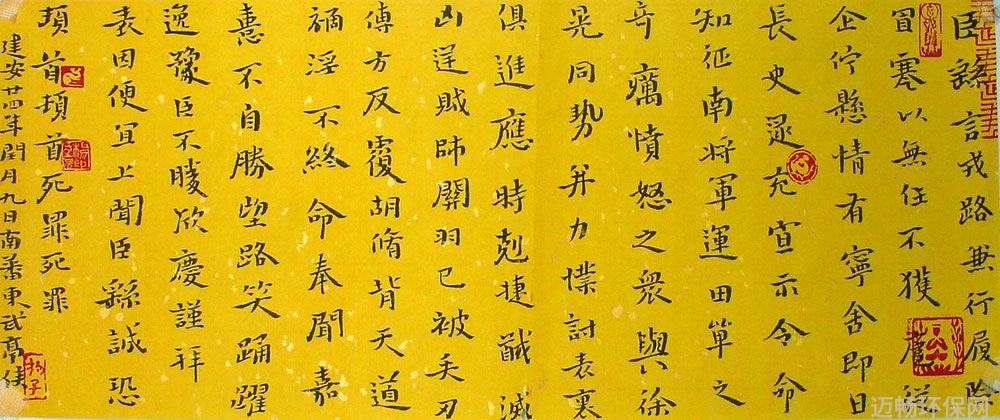 臣繇言戎路兼行履險
冒寒以無任不獲扈從
企佇懸情有寧舍即日
長史逯充宣示令命
知征南将軍運田單之
奇厲憤怒之衆與徐
晃同势并力撲討表裏
俱進應時剋捷馘滅
凶逆贼師關羽已被矢刃
傅方反覆胡脩背天道
禍淫不終命奉聞嘉
憙不自勝望路笑踊躍
逸豫臣不勝欣慶謹拜
表因便宜上聞臣繇誠恐
頓首頓首死罪死罪
建安廿四年閏月九日南蕃東武亭侯
迈畅环保网